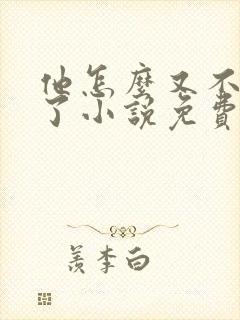 他怎麼又不
了小說免費
羨李白